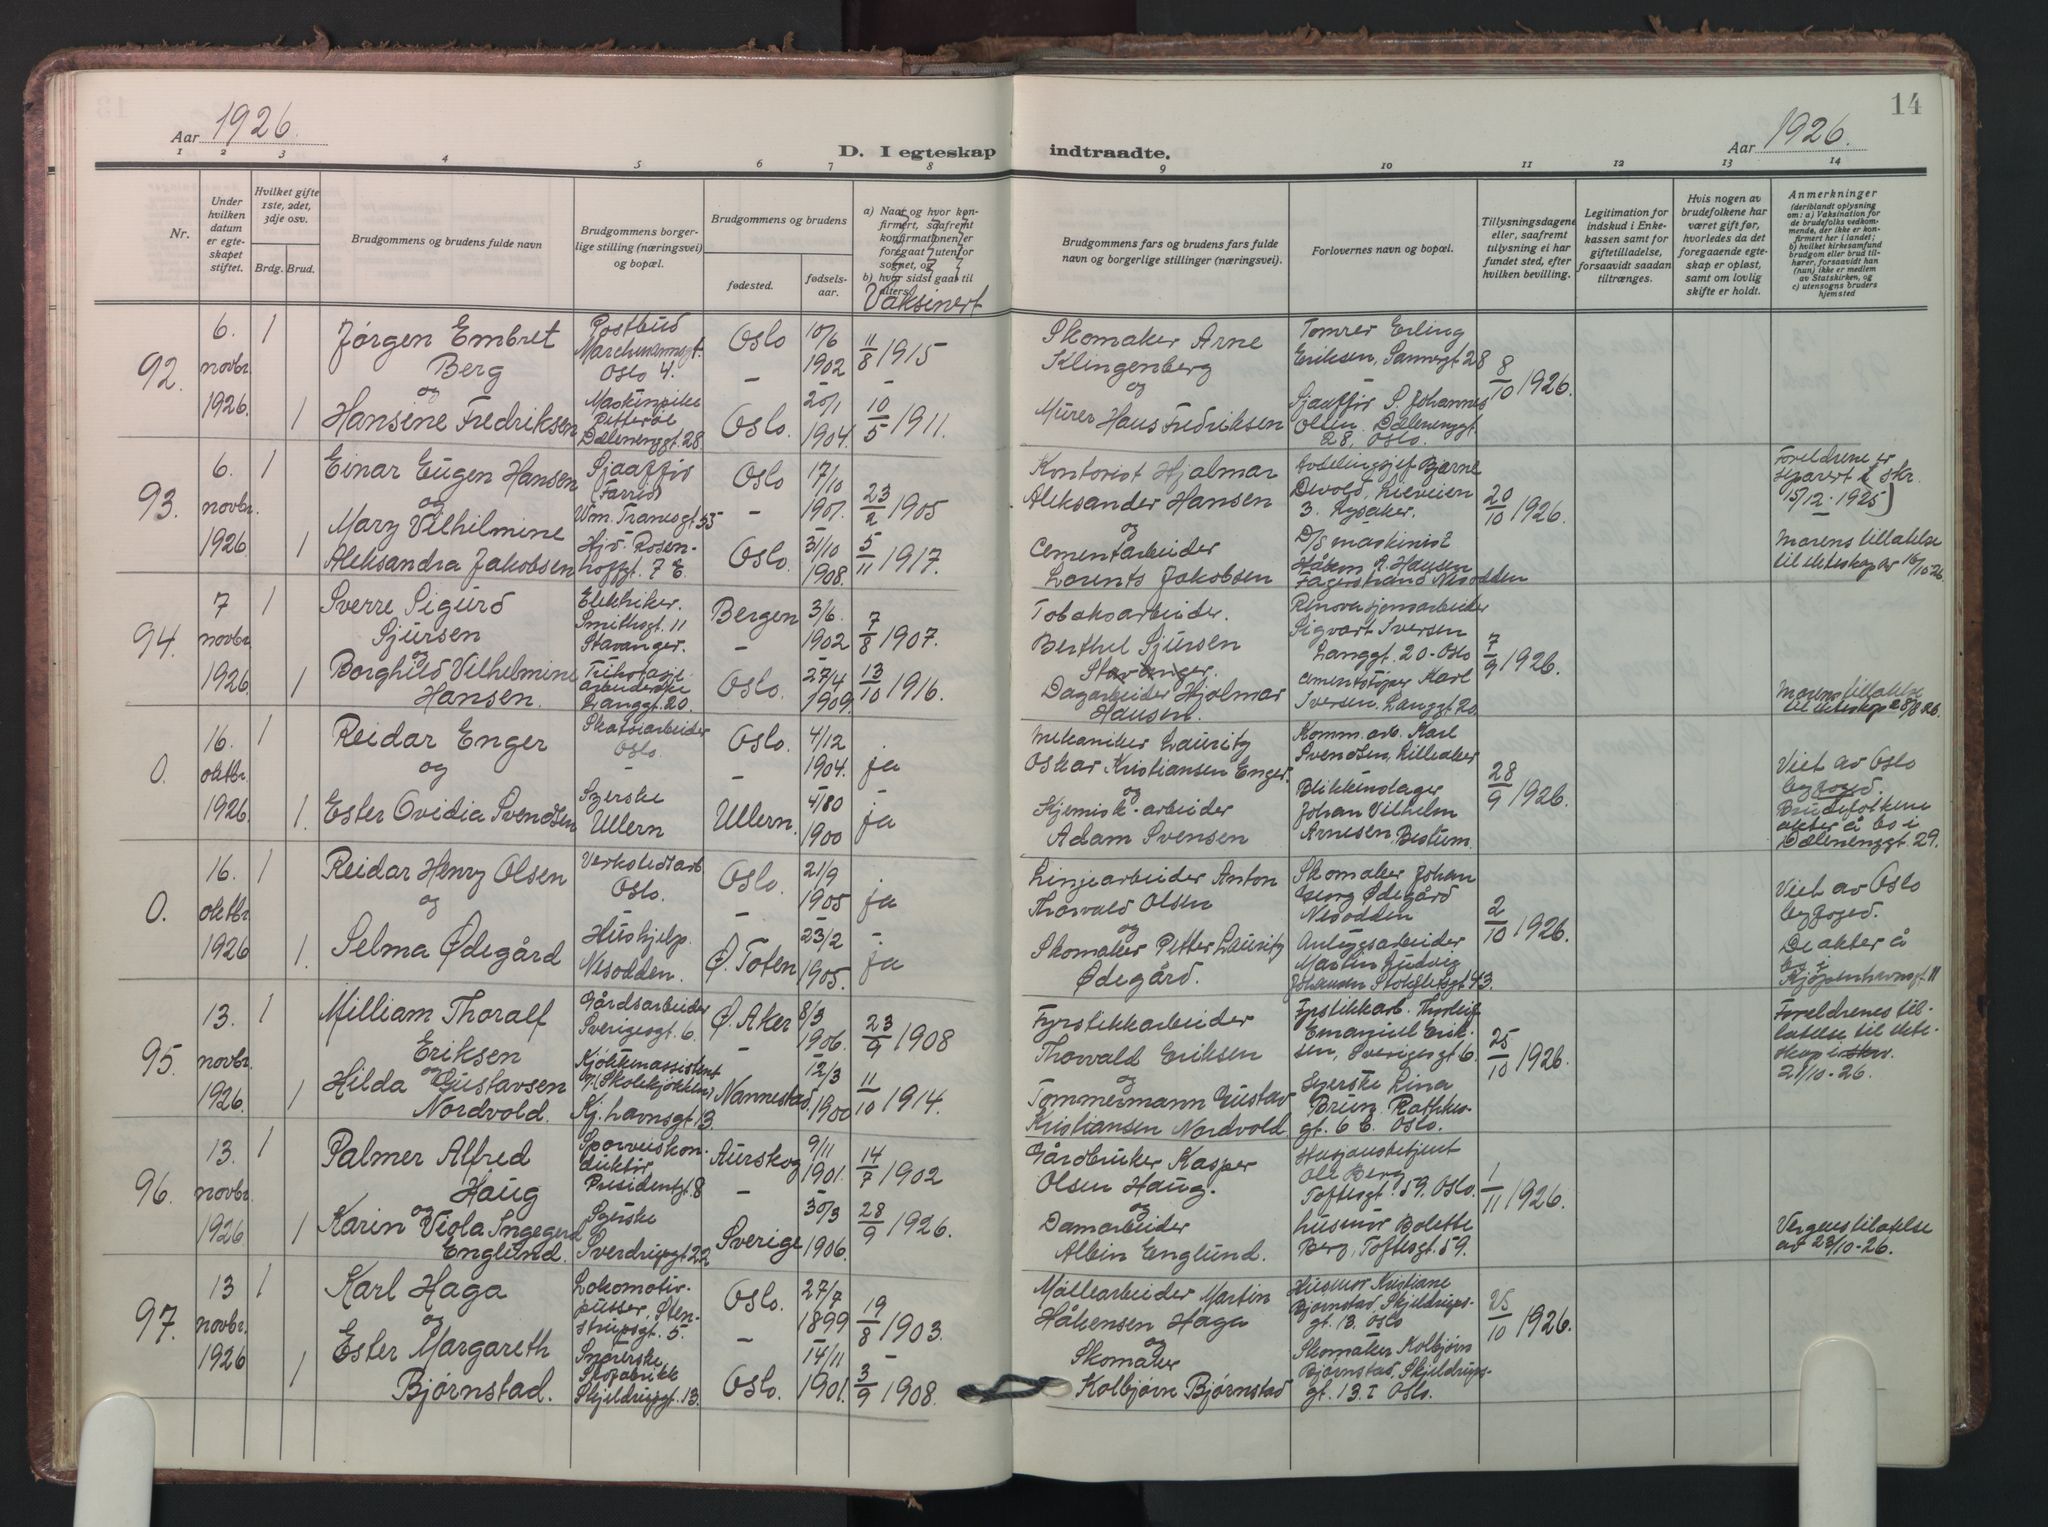 Aar 1926.
D. I egteskap indtraadte.
Aar 1926.
14
1 2 3 4 5 6 7 8 9 10 11 12 13 14
Nr.
Under hvilken datum er egteskapet stiftet.
Hvilket gifte 1ste, 2det, 3dje osv.
Brdg. Brud.
Brudgommens og brudens fulde navn
Brudgommens borgerlige stilling (næringsvei) og bopæl.
Brudgommens og brudens
fødested.
fødselsaar.
a) Naar og hvor konfirmert, saafremt konfirmationen er foregaat utenfor sognet, og
b) hvor sidst gaat til alters.
Vaksinert
Brudgommens fars og brudens fars fulde navn og borgerlige stillinger (næringsvei).
Forlovernes navn og bopæl.
Tillysningsdagene eller, saafremt tillysning ei har fundet sted, efter hvilken bevilling.
Legitimation for indskud i Enkekassen samt for giftetilladelse, forsaavidt saadan tiltrænges.
Hvis nogen av brudefolkene har været gift før, hvorledes da det foregaaende egteskap er opløst, samt om lovlig skifte er holdt.
Anmerkninger (deriblandt oplysning om: a) Vaksination for de brudefolks vedkommende, der ikke er konfirmert her i landet; b) hvilket kirkesamfund brudgom eller brud tilhører, forsaavidt han (hun) ikke er medlem av Statskirken, og c) utensogns bruders hjemsted
92. 6. novbr. 1926. 1
Jørgen Embret Berg
Postbud Marchmannsgt. Oslo 4.
Oslo 10/6 1902 11/8 1915
Skomaker Arne Klingenberg
Tomrer Erling Eriksen, Sannergt 28
8/10 1926.
og
1 Hansine Fredriksen
Dælenenggt. 28.
Oslo. 20/1 1904. 10/5 1911.
og
Murer Hans Fredriksen
Sjaaffør S. Johannes Olsen Dælenenggt. 28, Oslo.
93. 6. novbr. 1926 1
Einar Eugen Hansen
Sjaaffør Wm. Tranesgt 55
Oslo 17/10 1901. 23/2 1905
Kontorist Hjalmar Aleksander Hansen
Avdelingsjef Bjarne Devold, Lilleveien 3. Lysaker.
20/10 1926.
Foreldrene er separert 15/12-1925)
og
1 Mary Vilhilmine Aleksandra Jakobsen
Hjv. Rosenhoffgt. 7 E.
Oslo. 31/10 1908. 5/11 1917.
og
Cementarbeider Lorents Jakobsen
D/S maskinist Håkon A. Hansen Fagerstrand Nesodden
Morens tillatelse til ekteskap av 16/10 26.
94. 7 novbr. 1926. 1
Sverre Sigurd Sjursen
Elektriker. Smithsgt. 11 Stavanger.
Bergen 3/6 1902 7/8 1907.
Tobaksarbeider. Berthel Sjursen Stavanger.
Renovasjonsarbeider Sigvart Iversen Langgt. 20-Oslo
7/9 1926.
og
1 Borghild Vilhelmine Hansen.
Trikotasjearbeiderske Langgt. 20.
Oslo. 27/4 1909. 13/10 1916.
Dagarbeider Hjalmar Hansen.
Cementstøper Karl Iversen. Langgt 20
Morens tillatelse til ekteskap 28/8 26.
0. 16. oktbr. 1926 1
Reidar Enger
Oslo
Oslo. 4/12 1904. ja
Mekaniker Lauritz Oskar Kristiansen Enger.
Komm. arb. Karl Svendsen, Lilleaker
28/9 1926.
Viet av Oslo byfoged. Brudefolkene akter å bo i Dælenenggt. 29.
og
1. Ester Ovidia Svendsen
Syerske Ullern
Ullern. 1900 ja
og
Kjemisk-arbeider Adam Svensen
Blikkenslager Johan Vilhelm Arnesen, Bestum.
0. 16. oktbr. 1926 1
Reidar Henry Olsen
Verkstedsarb. Oslo.
Oslo. 21/9 1905 ja
Linjearbeider Anton Thorvald Olsen
Skomaker Johan Georg Ødegård Nesodden
2/10 1926.
Viet av Oslo byfoged. De akter å bo i Kjøpenhavnsgt 11
og
1. Selma Ødegård
Hushjelp. Nesodden.
Ø. Toten 23/2 1905. ja
og
Skomaker Petter Lauritz Ødegård.
Anleggsarbeider Martin Ludvig Johansen Stokfletsgt 43.
95. 13. novbr. 1926. 1
William Thoralf Eriksen
Gårdsarbeider Sverigesgt. 6.
Ø. Aker 8/3 1906. 23/9 1908
Fyrstikkarbeider Thorvald Eriksen
Fyrstikkarb. Thorleif Emanuel Eriksen, Sverigesgt 6.
25/10 1926.
Foreldrenes tillatelse til ekteskap i skr. 21/10-26.
og
1 Hilda Gustavsen Nordvold.
Kjøkkenassistent (Skolekjøkken) Kj. havnsgt. 13.
Nannestad 12/3 1900 11/10 1914.
og
Tommermann Gustav Kristiansen Nordvold
Syerske Lina Brun Rathkesgt. 6 b. Oslo.
96. 13. novbr. 1926 1
Palmer Alfred Haug
Sporveiskonduktør, Presidentgt. 8
Aurskog 9/11 1901. 14/7 1902
Gårdbruker Kasper Olsen Haug.
Ole Berg Toftesgt. 59. Oslo.
1/11 1926.
og
1 Karin Viola Ingegerd Englund.
Syerske Sverdrupsgt. 22
Sverige 30/3 1906. 28/9 1926.
og
Damarbeider Albin Englund.
husmor Bolette Berg, Toftesgt. 59.
Vergens tilatelse av 23/10-26.
97. 13 novbr. 1926 1
Karl Haga
Lokomotivpusser, Stenstrupsgt. 5
Oslo. 27/7 1899 19/8 1903.
Møllearbeider Martin Håkensen Haga
Husmor Kristiane Bjørnstad, Skjeldrupsgt. 13. Oslo
25/10 1926.
og
1 Ester Margareth Bjørnstad.
Skofabrikk Skjeldrupsgt. 13
Oslo. 14/11 1901. 3/9 1908.
og
Skomaker Kolbjørn Bjørnstad
Skomaker Kolbjørn Bjørnstad, Skjeldrupsgt. 13. I Oslo.